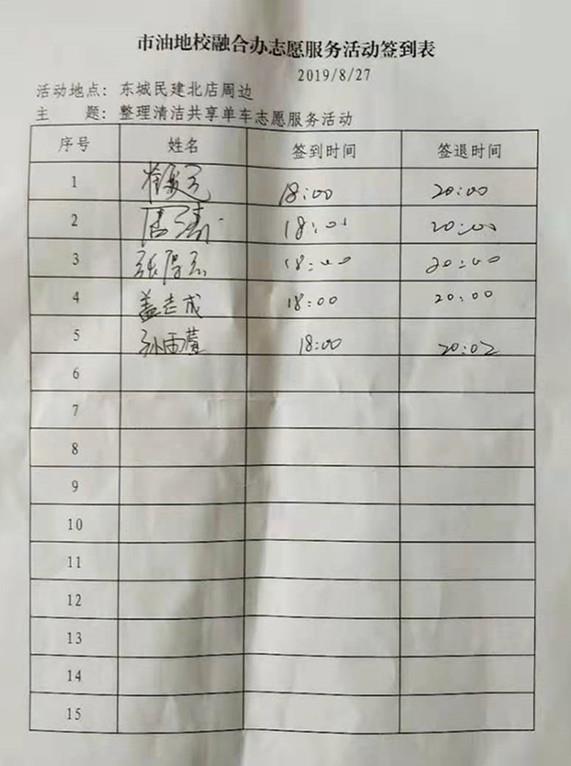 市油地校融合办志愿服务活动签到表
2019/8/27
活动地点：东城民建北店周边
主 题：整理清洁共享单车志愿服务活动
序号 姓名 签到时间 签退时间
1 18:00 20:00
2 18:00 20:00
3 18:00 20:00
4 盖志成 18:00 20:00
5 孙雨萱 18:00 20:02
6
7
8
9
10
11
12
13
14
15